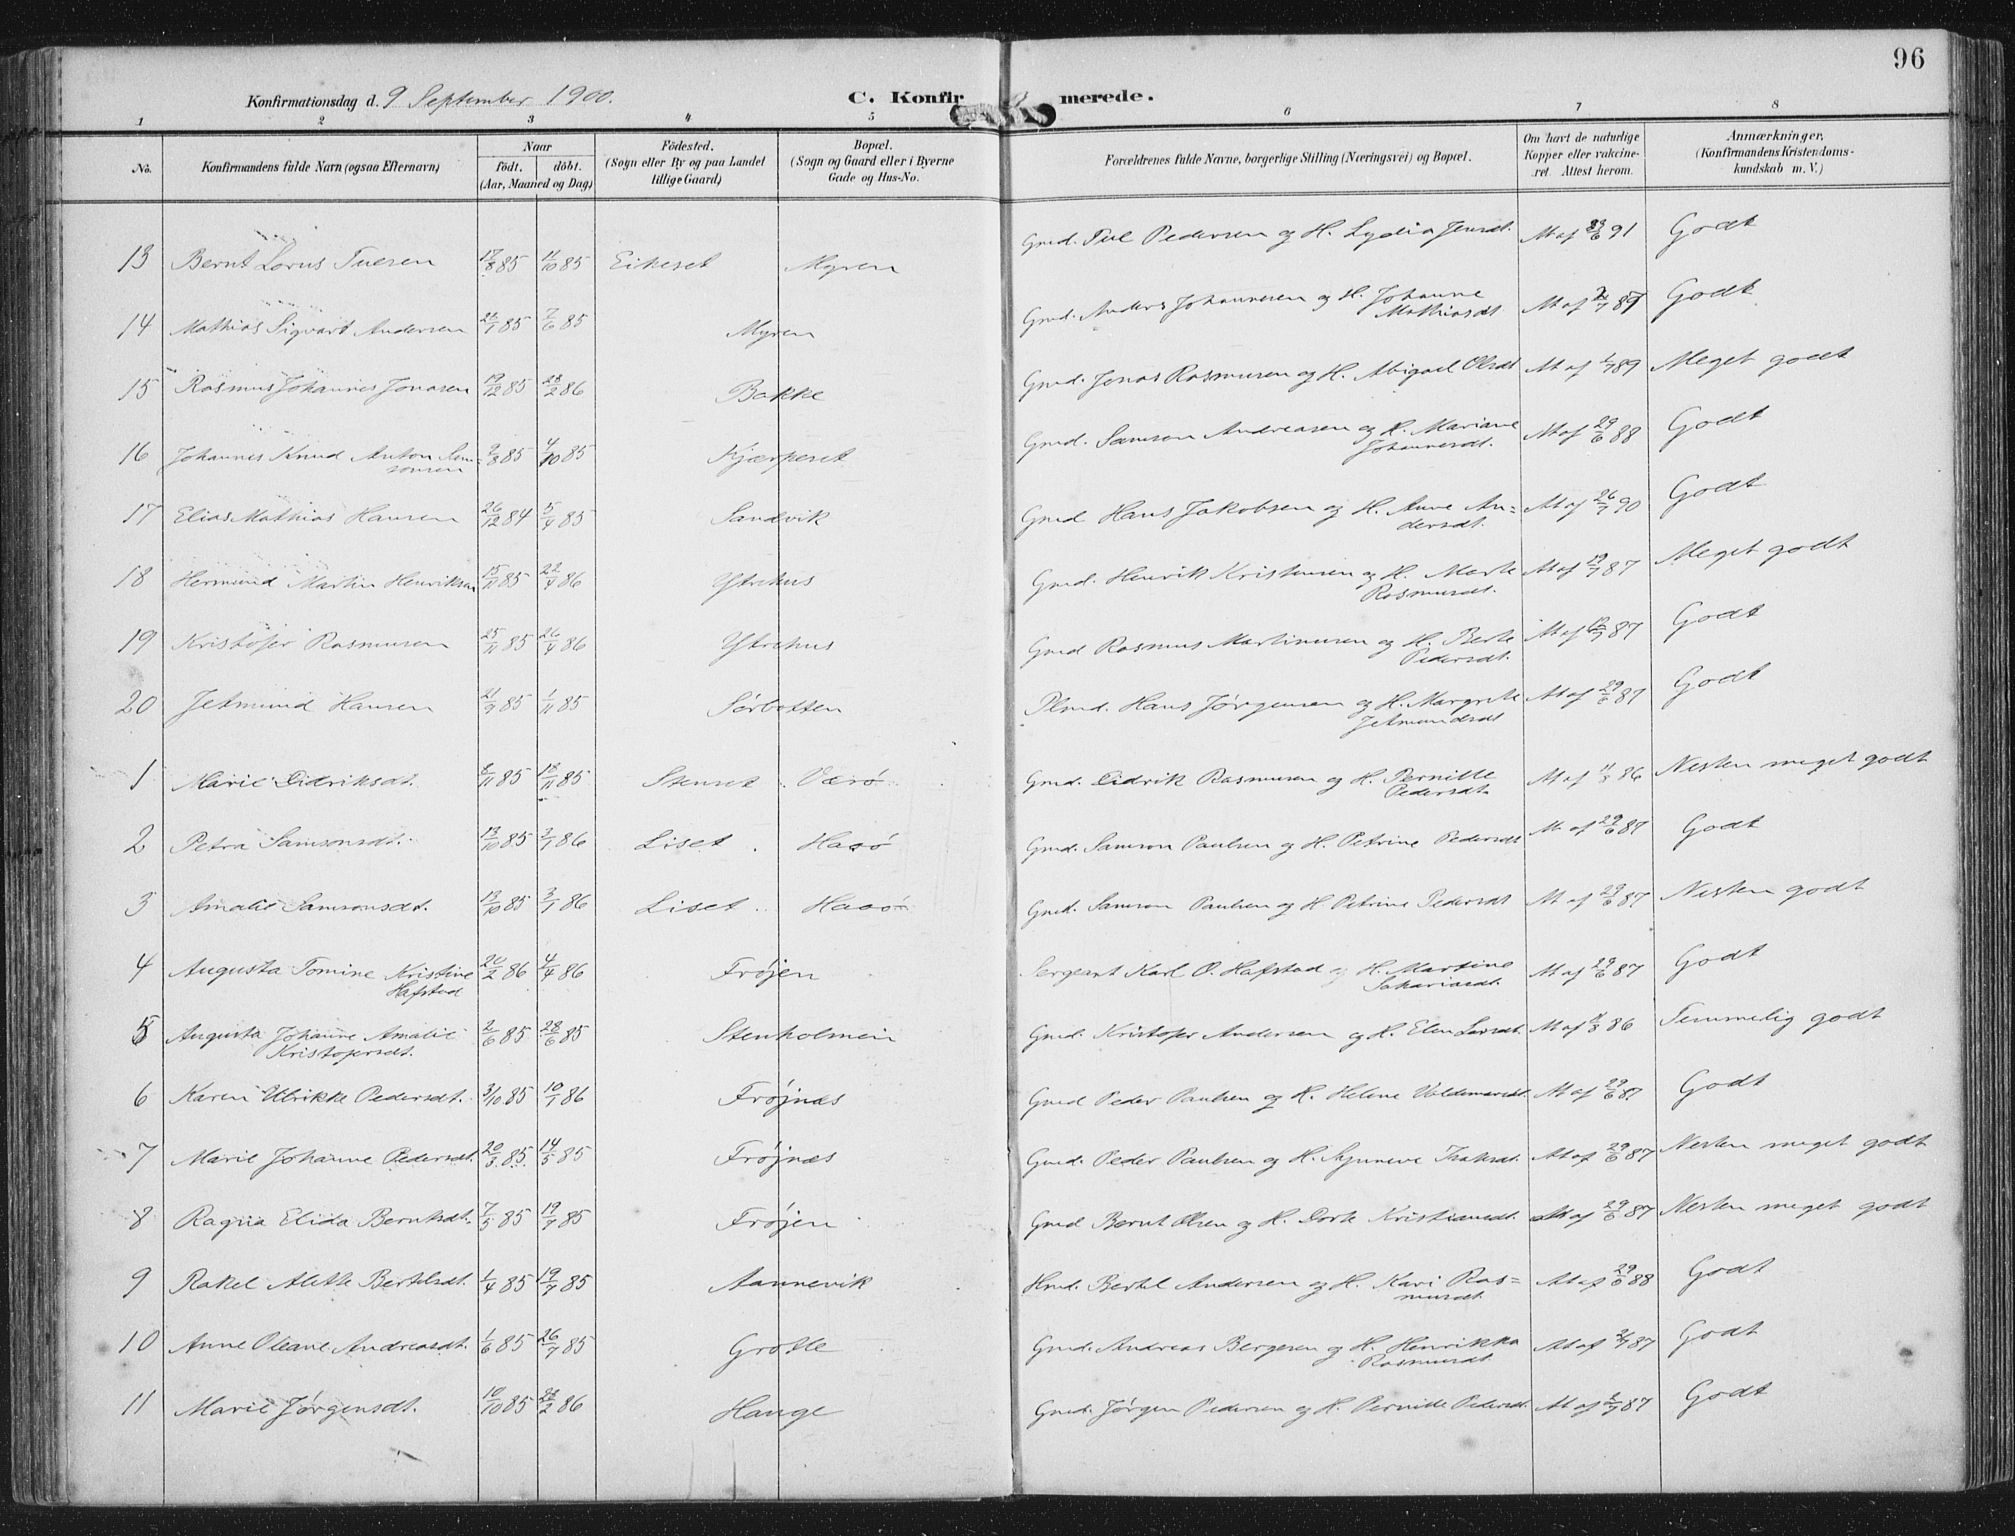 96
Konfirmationsdag d. 9 September 1900.
C. Konfirmerede.
1 2 3 4 5 6 7 8
No.
Konfirmandens fulde Navn (ogsaa Efternavn)
Naar
födt. döbt.
(Aar, Maaned og Dag)
Födested.
(Sogn eller By og paa Landet
tillige Gaard)
Bopæl.
(Sogn og Gaard eller i Byerne
Gade og Hus-No.
Forældrenes fulde Navne, borgerlige Stilling (Næringsvei) og Bopæl.
Om havt de naturlige
Kopper eller vakcine-
ret. Attest herom.
Anmærkninger.
(Konfirmandens Kristendoms-
kundskab m. V.)
13 Bernt Lorns Tuesen 17/8 85 11/10 85 Eikeset Myren Gmd. Tue Pedersen og H. Lydia Jensdt. At af 23/6 91 Godt
14 Mathias Sigvart Andersen 21/1 85 7/6 85 Myren Gmd. Anders Johannesen og H. Johanne
Mathiasdt At af 89 Godt
15 Rasmus Johannes Jonasen 19/12 85 28/2 86 Bakke Gmd. Jonas Rasmusen og H. Abigael Olsdt At af 89 Meget godt
16 Johannes Knud Anton Sam-
sonsen 9/8 85 4/10 85 Kjærpeset Gmd. Samson Andreasen og H. Mariane
Johannesdt. At af 29/6 88 Godt
17 Elias Mathias Hansen 26/12 84 5/4 85 Sandvik Gmd Hans Jakobsen og H. Anne An=
dersdt. At af 26/7 90 Godt
18 Hermund Martin Henriksen 15/11 85 22/4 86 Ytrehus Gmd. Henrik Kristensen og H. Marte
Rasmusdt. At af 19/7 87 Meget godt
19 Kristofer Rasmusen 25/11 85 26/4 86 Ytrehus Gmd Rasmus Martinusen og H. Berte
Pedersdt. At af 87 Godt
20 Jetmund Hansen 21/9 85 1/11 85 Sørbotten Plmd. Hans Jørgensen og H. Margrete
Jetmundsdt At af 29/6 87 Godt
1 Marie Didriksdt. 8/11 85 18/11 85 Stenset Værø Gmd. Didrik Rasmusen og H. Pernille
Pedersdt. At af 11/8 86 Nesten meget godt
2 Petra Samsonsdt. 13/10 85 3/1 86 Liset Hasø Gmd. Samson Paulsen og H. Petrine Pedersdt At af 29/6 87 Godt
3 Amalie Samsonsdt. 13/10 85 3/1 86 Liset Hasø Gmd. Samson Paulsen og H. Petrine Pedersdt At af 29/6 87 Nesten godt
4 Augusta Tomine Kristine
Hafstad 20/2 86 4/4 86 Frøjen Sergeant Karl O. Hafstad og H. Martine
Sakariasdt. At af 29/6 87 Godt
5 Augusta Johanne Amalie
Kristofersdt. 2/6 85 28/6 85 Stenholmen Gmd. Kristofer Andersen og H. Elen Larsdt. At af 86 Temmelig godt
6 Karen Ulrikke Pedersdt. 3/10 85 10/1 86 Frøjnæs Gmd Peder Paulsen og H. Helene Voldemarsdt. At af 29/6 87 Godt
7 Marie Johanne Pedersdt. 20/3 85 14/5 85 Frøjnæs Gmd. Peder Paulsen og H. Synneve Isaksdt. At af 29/6 87 Nesten meget godt
8 Ragna Elida Berntsdt. 7/5 85 19/7 85 Frøjen Gmd Bernt Olsen og H. Dorte Kristiansdt. At af 29/6 87 Nesten meget godt
9 Rakel Alette Bertelsdt. 1/4 85 19/7 85 Aannevik Hmd. Bertel Andersen og H. Kari Ras=
musdt. At af 29/6 88 Godt
10 Anne Oleane Andreasdt. 1/6 85 26/7 85 Grotle Gmd. Andreas Bergesen og H. Henrikka
Rasmusdt. At af 2/7 87 Godt
11 Marie Jørgensdt. 10/10 85 28/2 86 Hauge Gmd. Jørgen Pedersen og H. Pernille Pedersdt. At af 2/7 87 Godt